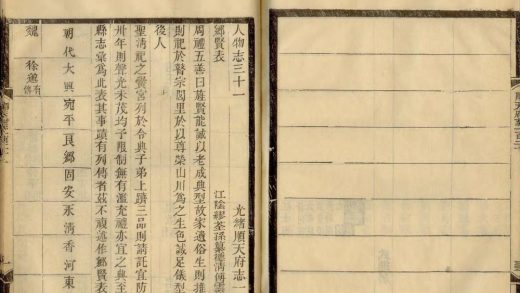 人物志三十一 光緒順天府志一
鄉賢表 江陰繆荃孫纂德清傅雲
周禮五善曰賢能誠以老成典型故家遺俗生則推
則祀於瞽宗閭里於以尊榮山川為之生色誠足儀型
後人
聖清祀之黌宮列於令典子弟上躋三品則請託宜防
卅年則聲光未茂均予限制無有濫充禮亦宜之典至
縣志彙為此表其事蹟有列傳者茲不複述作鄉賢表
朝代 大興 宛平 良鄉 固安 永清 香河 東
魏 徐邈有傳